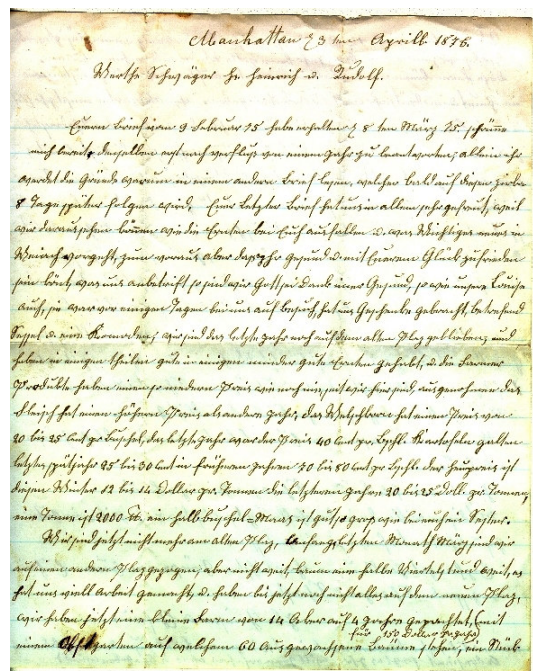 Manhattan d 3ten Aprill 1876.
Werthe Schwäger He Heinrich u. Rudolf.
Euern Brief vom 9 Februar 75 habe erhalten d 8ten März 75. schäme
mich bereits denselben erst nach verfluß von einem Jahr zu beantworten, allein ihr
werdet die Gründe warum in einem andern Brief lesen, welcher bald auf diesen zirka
8 Tage später folgen wird. Euer letzter Brief hat uns in allem sehr gefreut, weil
wir daraus sehen können wie die Ernten bei Euch ausfallen u. was Wichtiges neues in
Weiach vorgeht, zum voraus aber das Ihr gesund u. mit Euerem Glück zufrieden
sein könt, was uns anbetrift so sind wir Gott sei Dank imer Gesund, so wie unsere Louise
auch, sie war vor einigen Tagen bei uns auf besuch, hat uns Geschenke gebracht, betrefend
Sessel u. eine Komoden; wir sind das letzte Jahr noch auf dem alten Plaz geblieben, und
haben in einigen theilen gute in einigen minder gute Ernten gehabt, u. die Farmer
Produkte haben einen so niedern Preis wie noch nie, seit wir hier sind, ausgenohmen das
Fleisch hat einen höhern Preis als andere Jahre, das Welschkorn hat einen Preis von
20 bis 25 Cent pr Buschel, das letzte Jahr war der Preis 40 Cent pr. Bschl. Kartofeln galten
letztes spätjahr 25 bis 30 Cent in frühern Jahren 70 bis 80 Cent pr Bschl. der Heupreis ist
diesen Winter 12 bis 14 Dollar pr. Tonnen die letzteren Jahre 20 bis 25 Doll. pr. Tonnen,
eine Tonne ist 2000 ℔. ein halb buschel=Maas ist gut so groß wie bei euch ein Sester.
Wir sind jetzt nicht mehr am alten Plaz, Anfangs letzten Monath März sind wir
auf einen andern Plaz gezogen, aber nicht weit, kaum eine halbe Viertelstund weit, es
hat uns viell Arbeit gemacht, u. haben bis jetzt noch nicht alles auf dem neuen Plaz,
wir haben jetzt eine kleine Farm von 14 Aker auf 4 Jahre gepachtet, (mit
für 150 Dollar pr Jahr)
einem Obstgarten auf welchem 60 Ausgewachsene Bäume stehen, ein Stück